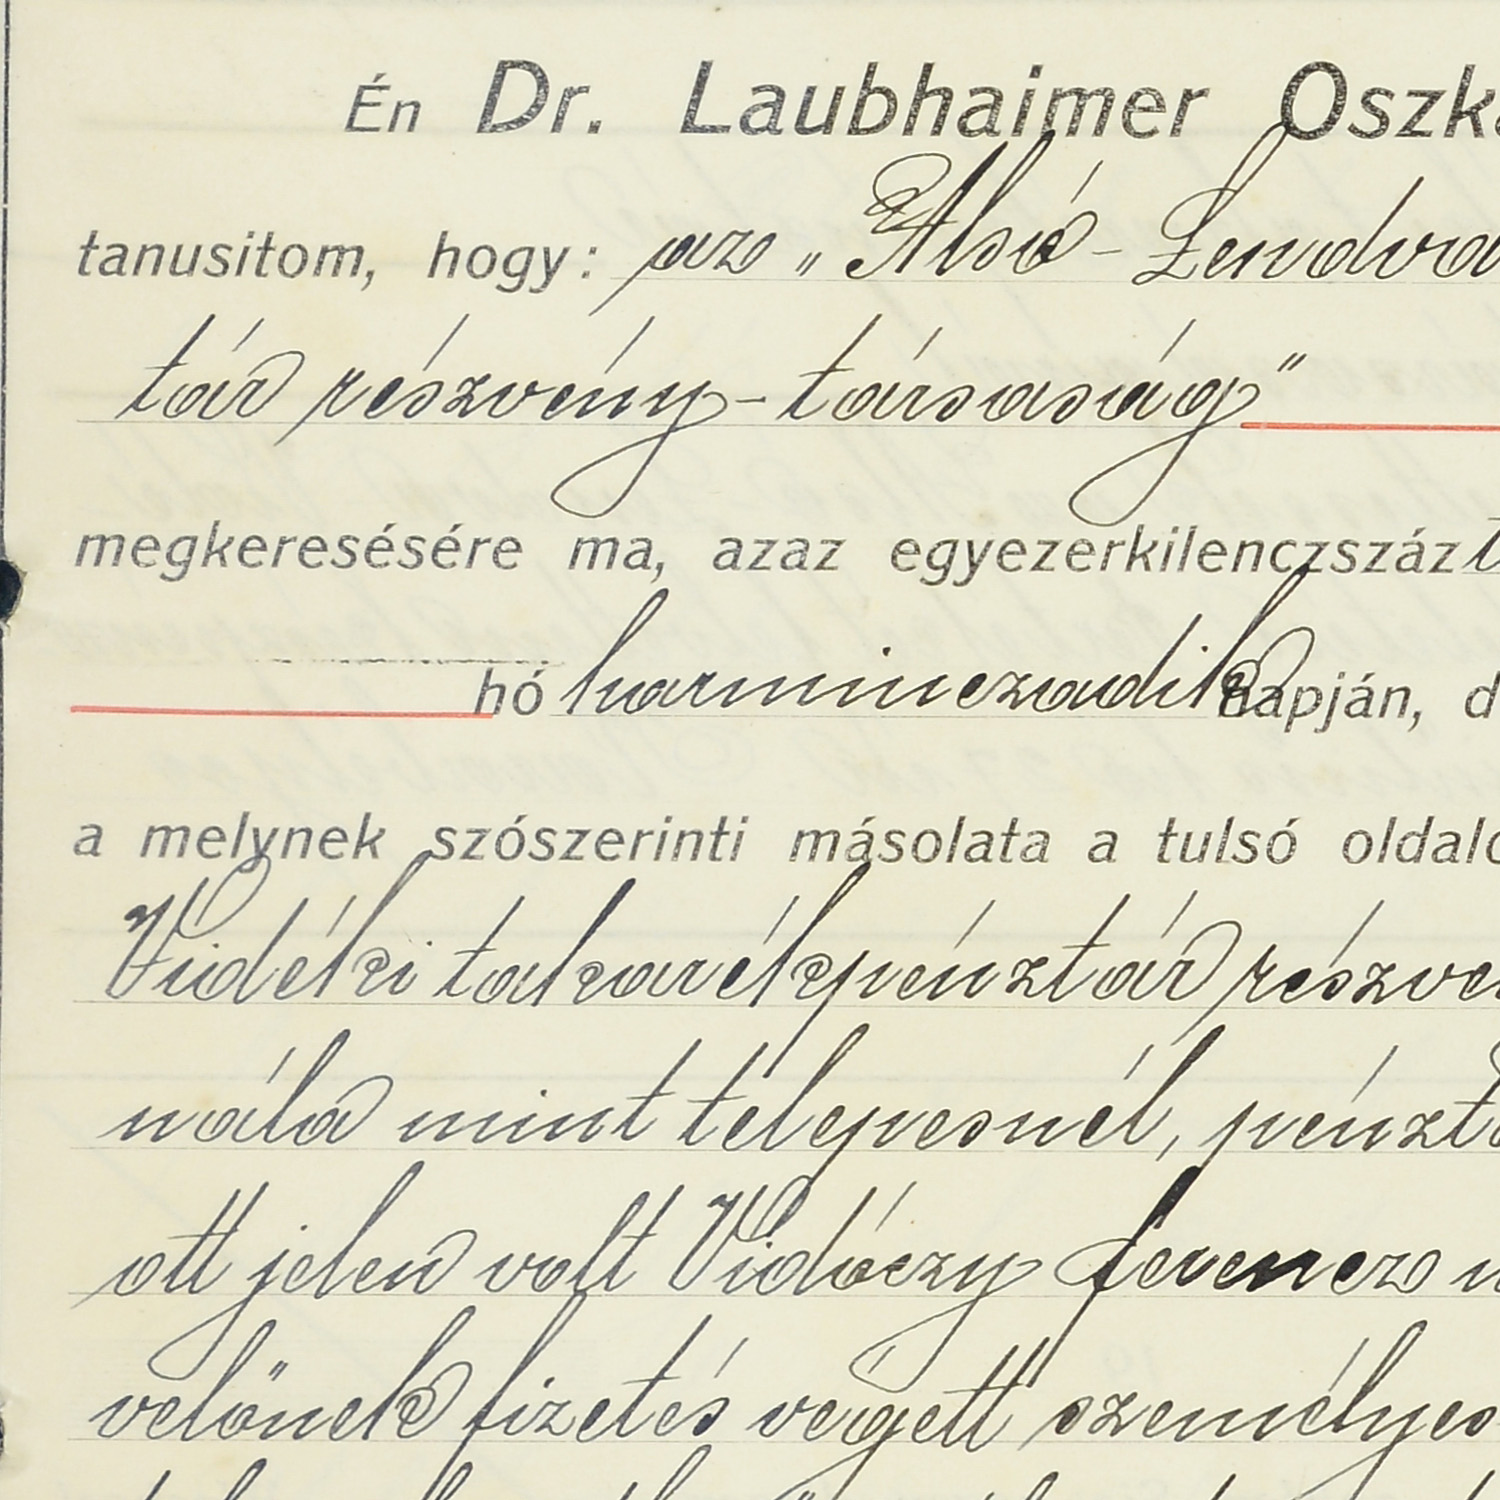 Én Dr. Laubhaimer Oszká
tanusitom, hogy: az „Alsó-Lendva
tár részvény-társaság"
megkeresésére ma, azaz egyezerkilenczszázt
hó harminczadik napján, d
a melynek szószerinti másolata a tulsó oldalo
Vidéki takarékpénztár részvé
nála mint telepesnél, pénztá
ott jelen volt Vidóczy Ferencz
velőnek fizetés végett személyes